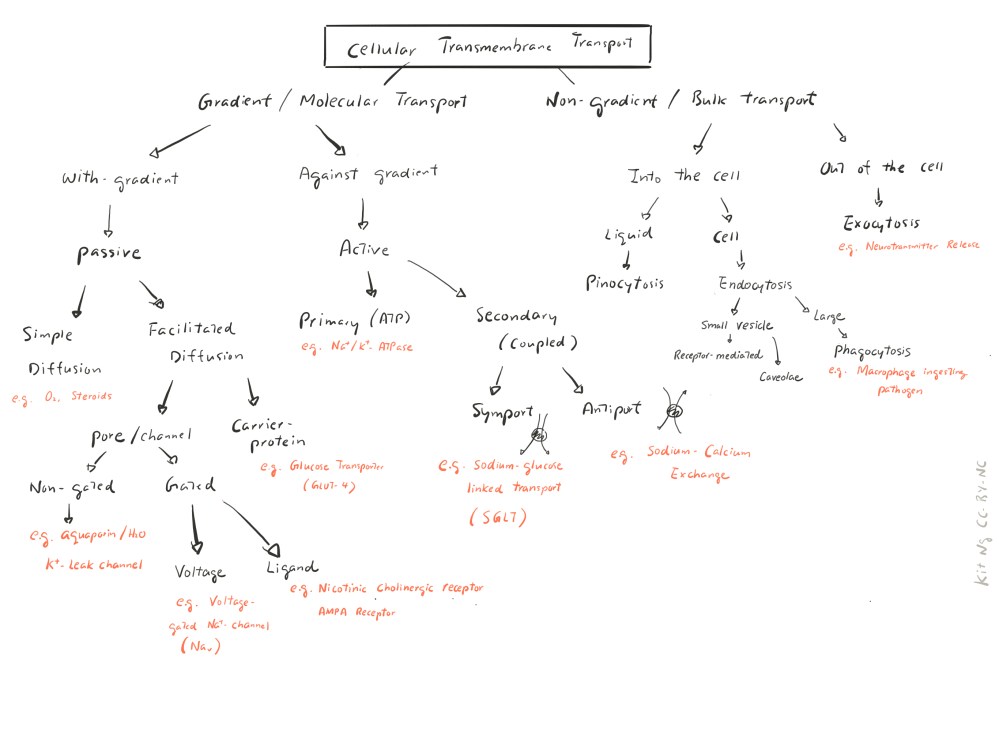 Cellular Transmembrane Transport
Gradient / Molecular Transport
Non-gradient / Bulk transport
With-gradient
Against gradient
Into the cell
Out of the cell
Passive
Active
Liquid
Cell
Exocytosis
e.g. Neurotransmitter Release
Pinocytosis
Endocytosis
Simple
Diffusion
e.g. O₂, Steroids
Facilitated
Diffusion
Primary (ATP)
e.g. Na⁺/K⁺- ATPase
Secondary
(Coupled)
Small vesicle
Large
Receptor-mediated
Caveolae
Phagocytosis
e.g. Macrophage ingesting
pathogen
Pore/channel
Carrier-
protein
e.g. Glucose Transporter
(GLUT-4)
Symport
Antiport
e.g. Sodium-glucose
linked transport
(SGLT)
e.g. Sodium-Calcium
Exchange
Non-gated
Gated
e.g. aquaporin/H₂O
K⁺-Leak channel
Voltage
e.g. Voltage-
gated Na⁺-channel
(Naᵥ)
Ligand
e.g. Nicotinic Cholinergic receptor
AMPA Receptor
Kit Ng CC-BY-NC